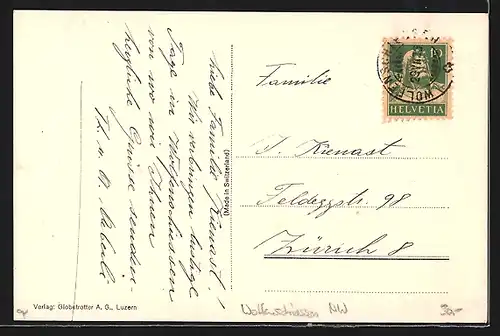 Liebe Familie Kienast!
Wir verbringen lustige
Tage in Wolfenschiessen
von wo wir Ihnen
herzliche Grüsse senden.
(Made in Switzerland)
WOLFENSCHIESSEN
HELVETIA
Familie
J. Kienast
Feldeggstr. 98
Zürich 8
Verlag: Globetrotter A. G., Luzern
Wolfenschiessen NW
30.-